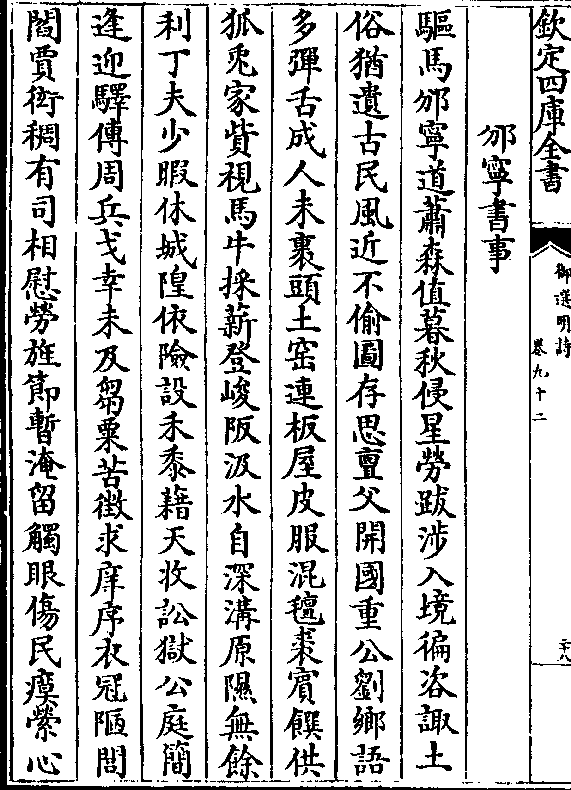 欽定四庫全書
御選明詩
卷九十二
二十八
邠寧書事
驅馬邠寧道蕭森值暮秋侵星勞跋涉入境徧咨諏土
俗猶遺古民風近不偷圖存思亶父開國重公劉鄉語
多彈舌成人未裹頭土窑連板屋皮服混氊裘賓饌供
狐兎家貲視馬牛採薪登峻阪汲水自深溝原隰無餘
利丁夫少暇休城隍依險設禾黍藉天收訟獄公庭簡
逢迎驛傳周兵戈幸未及芻粟苦徴求庠序衣冠陋閭
閻賈衒稠有司相慰勞旌節暫淹留觸眼傷民瘼縈心